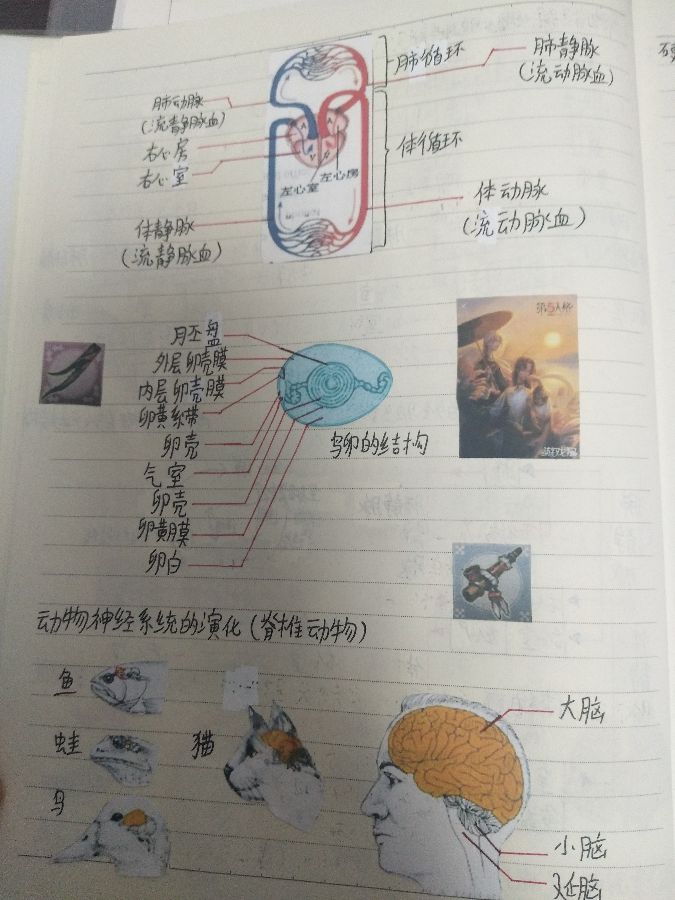 肺循环
肺静脉
(流动脉血)
肺动脉
(流静脉血)
右心房
右心室
体循环
左心房
左心室
体动脉
(流动脉血)
体静脉
(流静脉血)
胚盘
外层卵壳膜
内层卵壳膜
卵黄系带
卵壳
气室
卵壳
卵黄膜
卵白
鸟卵的结构
第五人格
动物神经系统的演化(脊椎动物)
鱼
蛙
鸟
猫
大脑
小脑
延脑